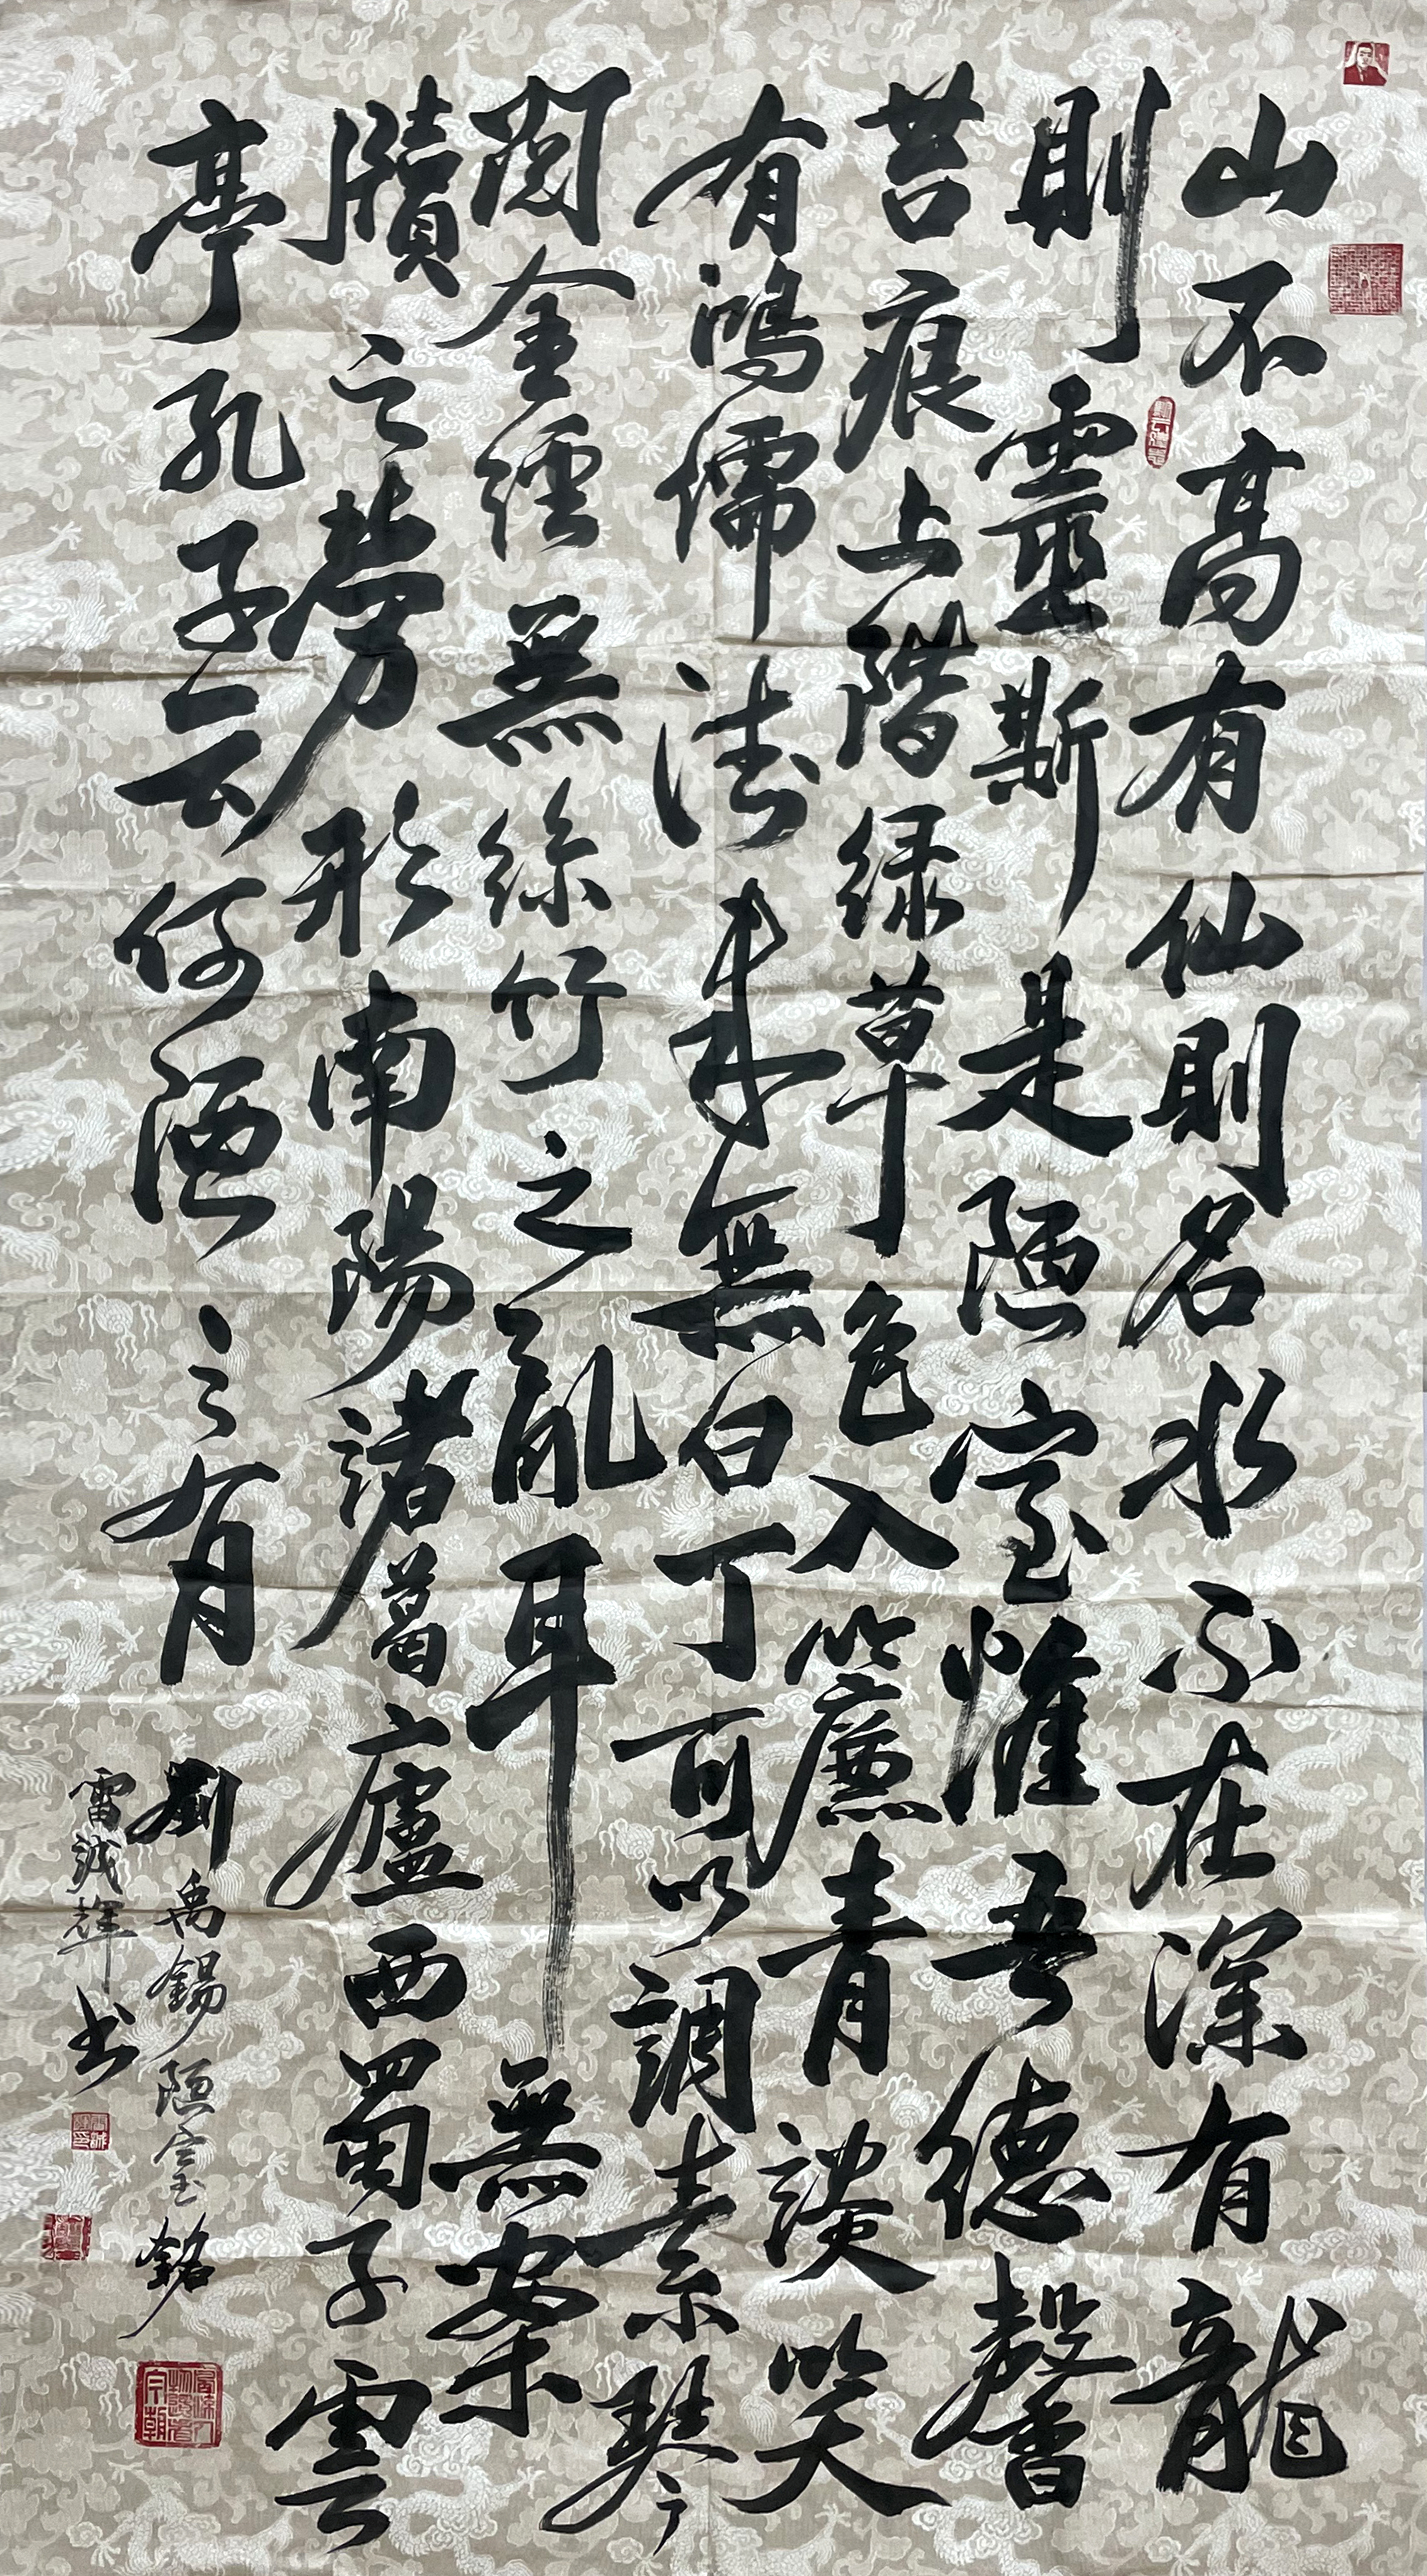 山不高有仙則名水不在深有龍
則靈斯是陋室惟吾德馨
苔痕上階绿草色入簾青談笑
有鴻儒往来無白丁可以調素琴
閲金經無絲竹之亂耳無案
牘之勞形南陽諸葛廬西蜀子雲
亭孔子云何陋之有
劉禹錫陋室銘
雷誠輝书